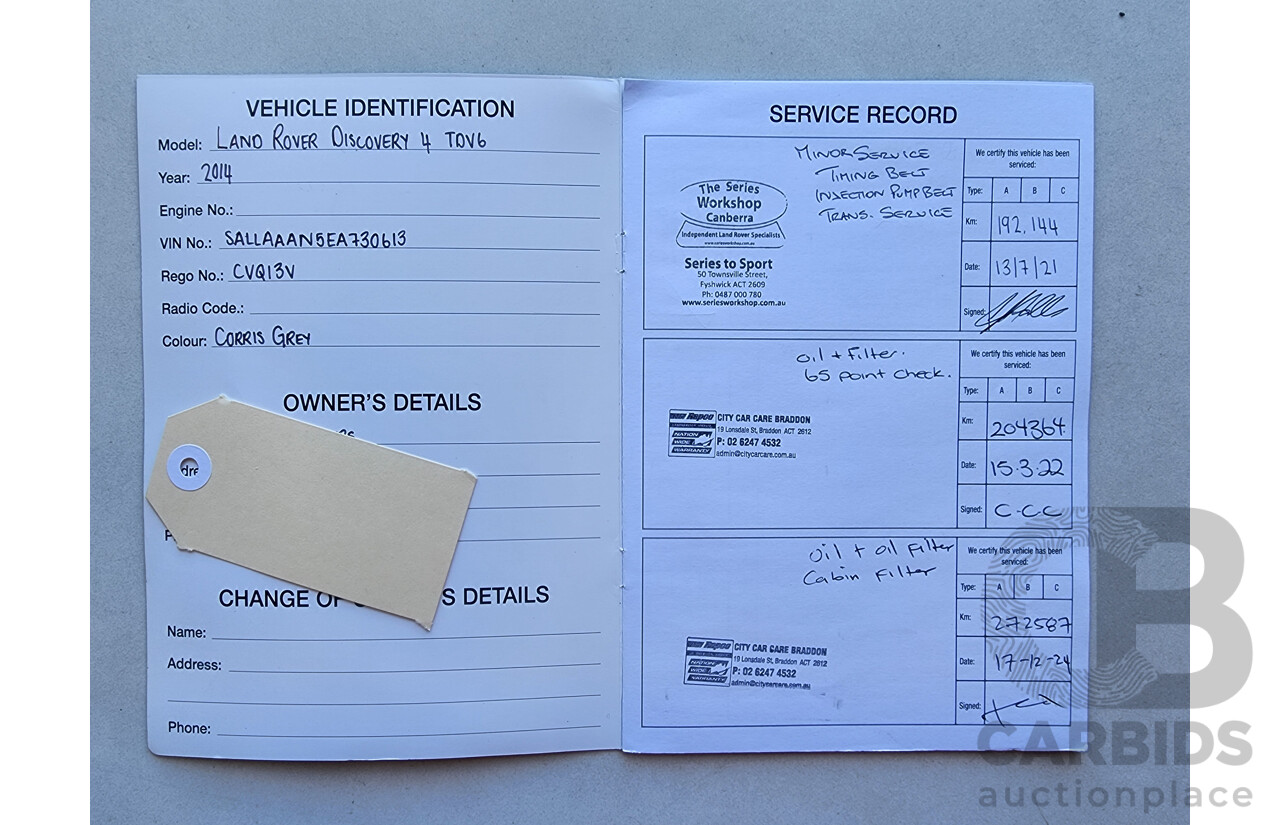 VEHICLE IDENTIFICATION
Model: LAND ROVER DISCOVERY 4 TDV6
Year: 2014
Engine No.:
VIN No.: SALLAAAN5EA730613
Rego No.: CVQ13V
Radio Code.:
Colour: CORRIS GREY
OWNER'S DETAILS
dre
CHANGE OF S DETAILS
Name:
Address:
Phone:
SERVICE RECORD
MINOR SERVICE
TIMING BELT
INJECTION PUMP BELT
TRANS. SERVICE
The Series
Workshop
Canberra
Independent Land Rover Specialists
www.seriesworkshop.com.au
Series to Sport
50 Townsville Street,
Fyshwick ACT 2609
Ph: 0487 000 780
www.seriesworkshop.com.au
We certify this vehicle has been
serviced:
Type: A B C
Km: 192,144
Date: 13/7/21
Signed:
Oil + Filter.
65 point check.
Repco CITY CAR CARE BRADDON
19 Lonsdale St, Braddon ACT 2612
NATION
WIDE
WARRANTY
P: 02 6247 4532
admin@citycarcare.com.au
We certify this vehicle has been
serviced:
Type: A B C
Km: 204364
Date: 15.3.22
Signed: C.C.C
Oil + Oil Filter
Cabin Filter
Repco CITY CAR CARE BRADDON
19 Lonsdale St, Braddon ACT 2612
NATION
WIDE
WARRANTY
P: 02 6247 4532
admin@citycarcare.com.au
We certify this vehicle has been
serviced:
Type: A B C
Km: 272587
Date: 17-12-24
Signed:
CARBIDS
auctionplace